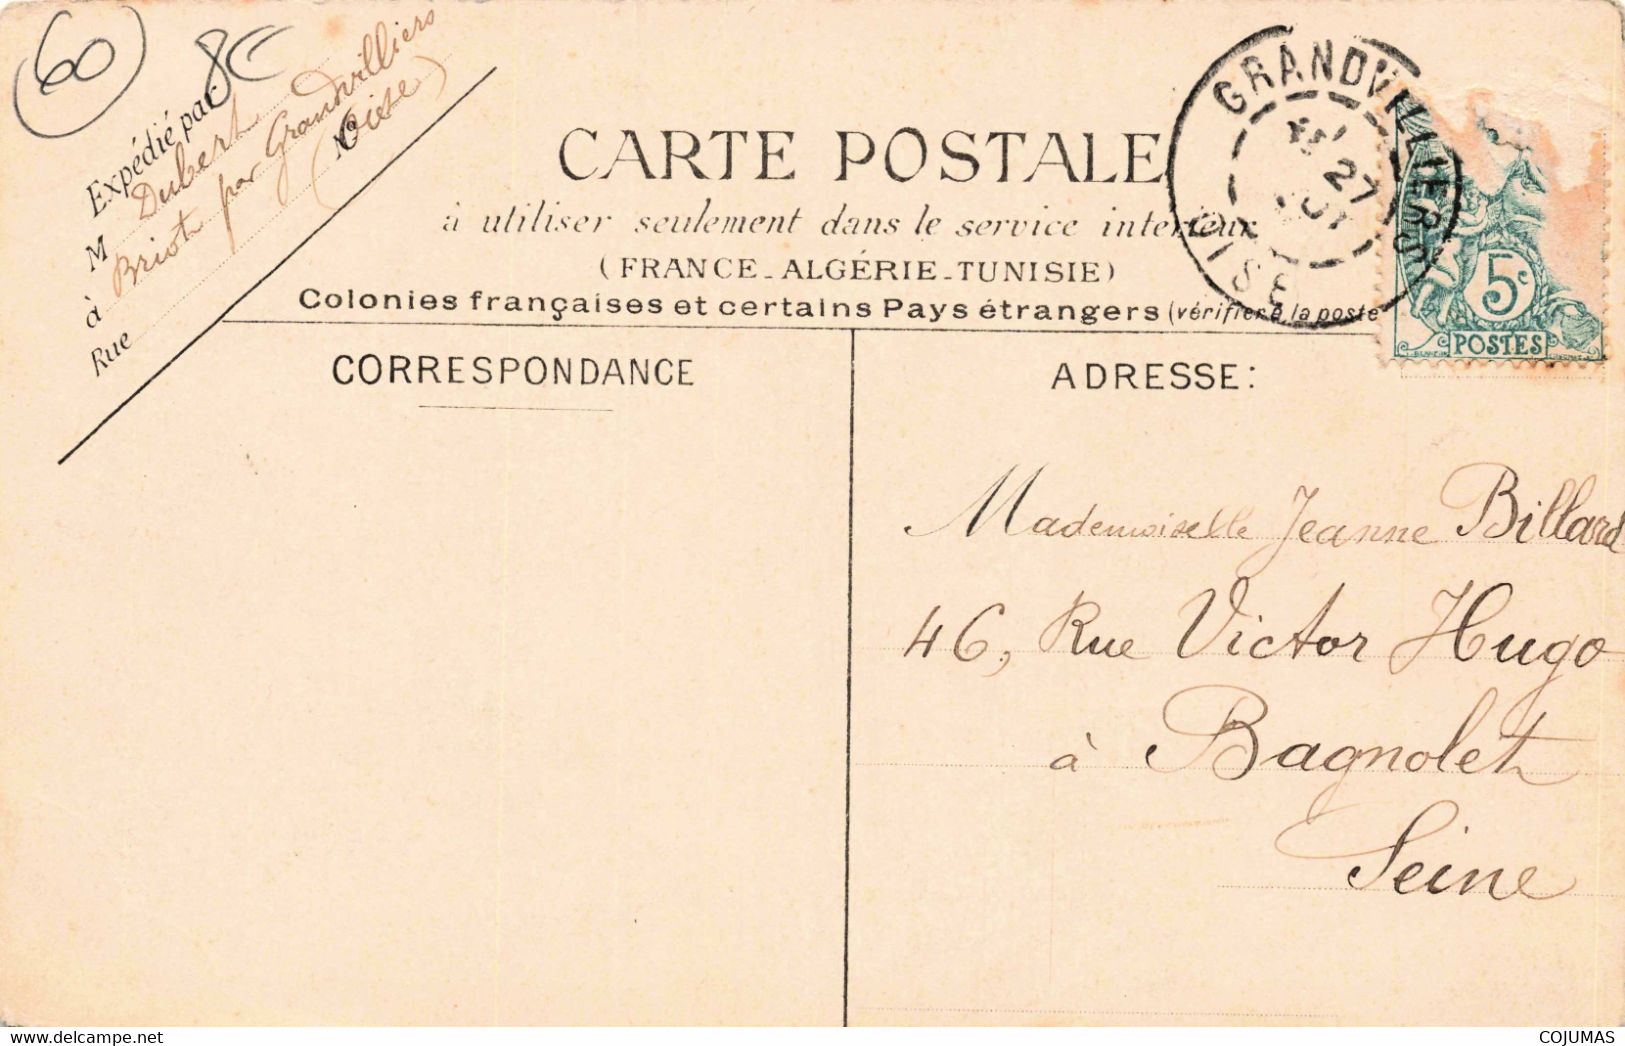 60
8€
Expédié par
M Dubert
à Briot par Grandvilliers
Rue Nº
(Oise)
CARTE POSTALE
à utiliser seulement dans le service intérieur
(FRANCE-ALGÉRIE-TUNISIE)
Colonies françaises et certains Pays étrangers (vérifier à la poste
GRANDVILLIERS
27
OISE
5c
POSTES
CORRESPONDANCE
ADRESSE:
Mademoiselle Jeanne Billard
46, Rue Victor Hugo
à Bagnolet
Seine
COJUMAS